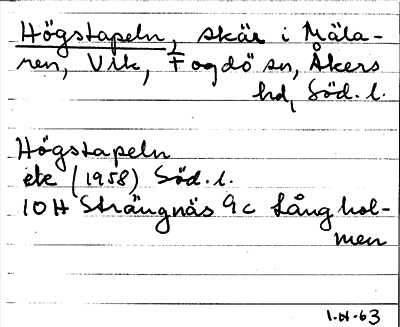 Högstapeln, skär i Mäla-
ren, Vik, Fogdö sn, Åkers
hd, Söd. l.
Högstapeln
ek (1958) Söd. l.
10H Strängnäs 9c Långhol-
men
63